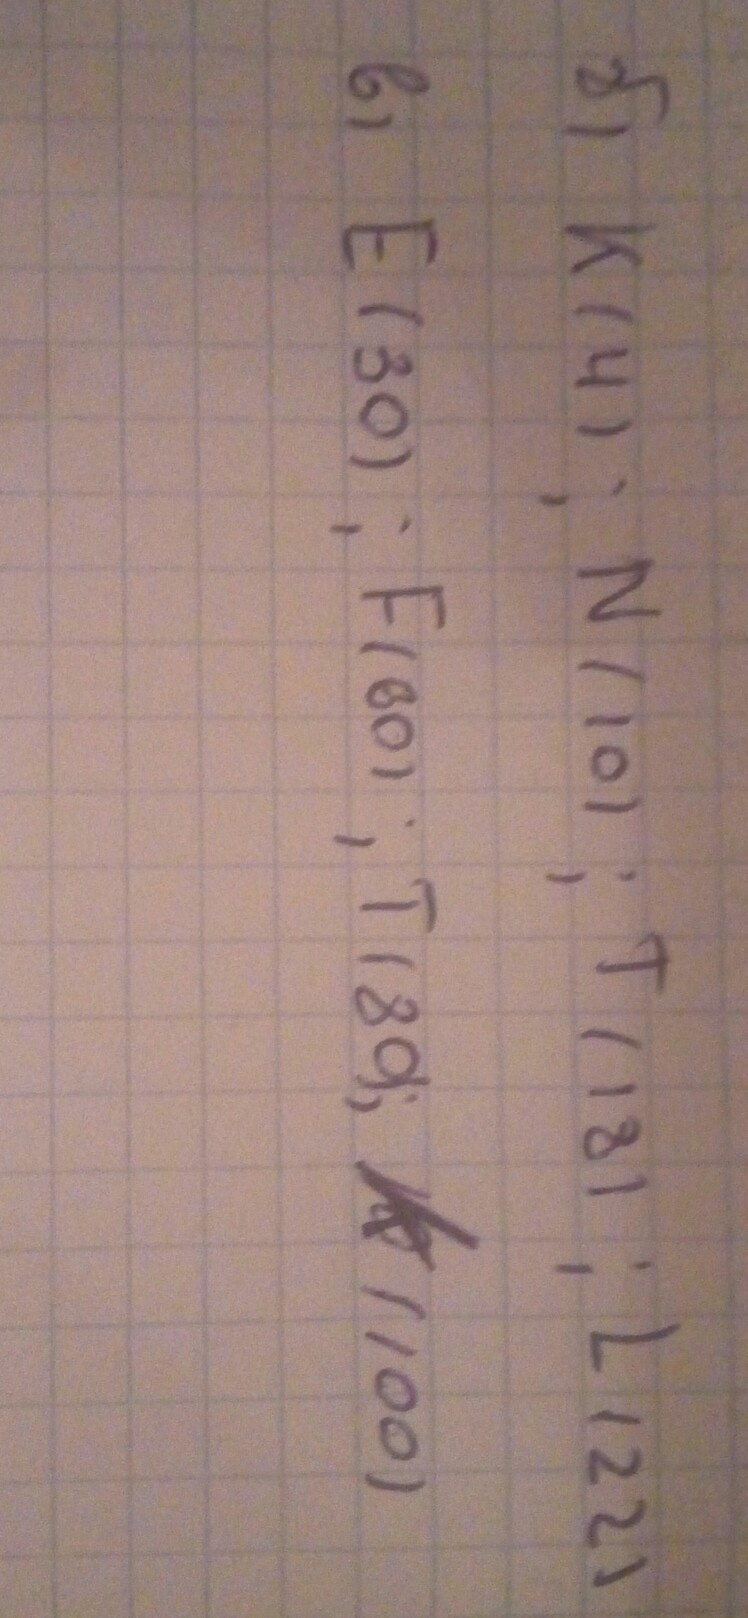 б) K(4); N(10); T(18); L(22)
в) E(30); F(60); T(80); (100)